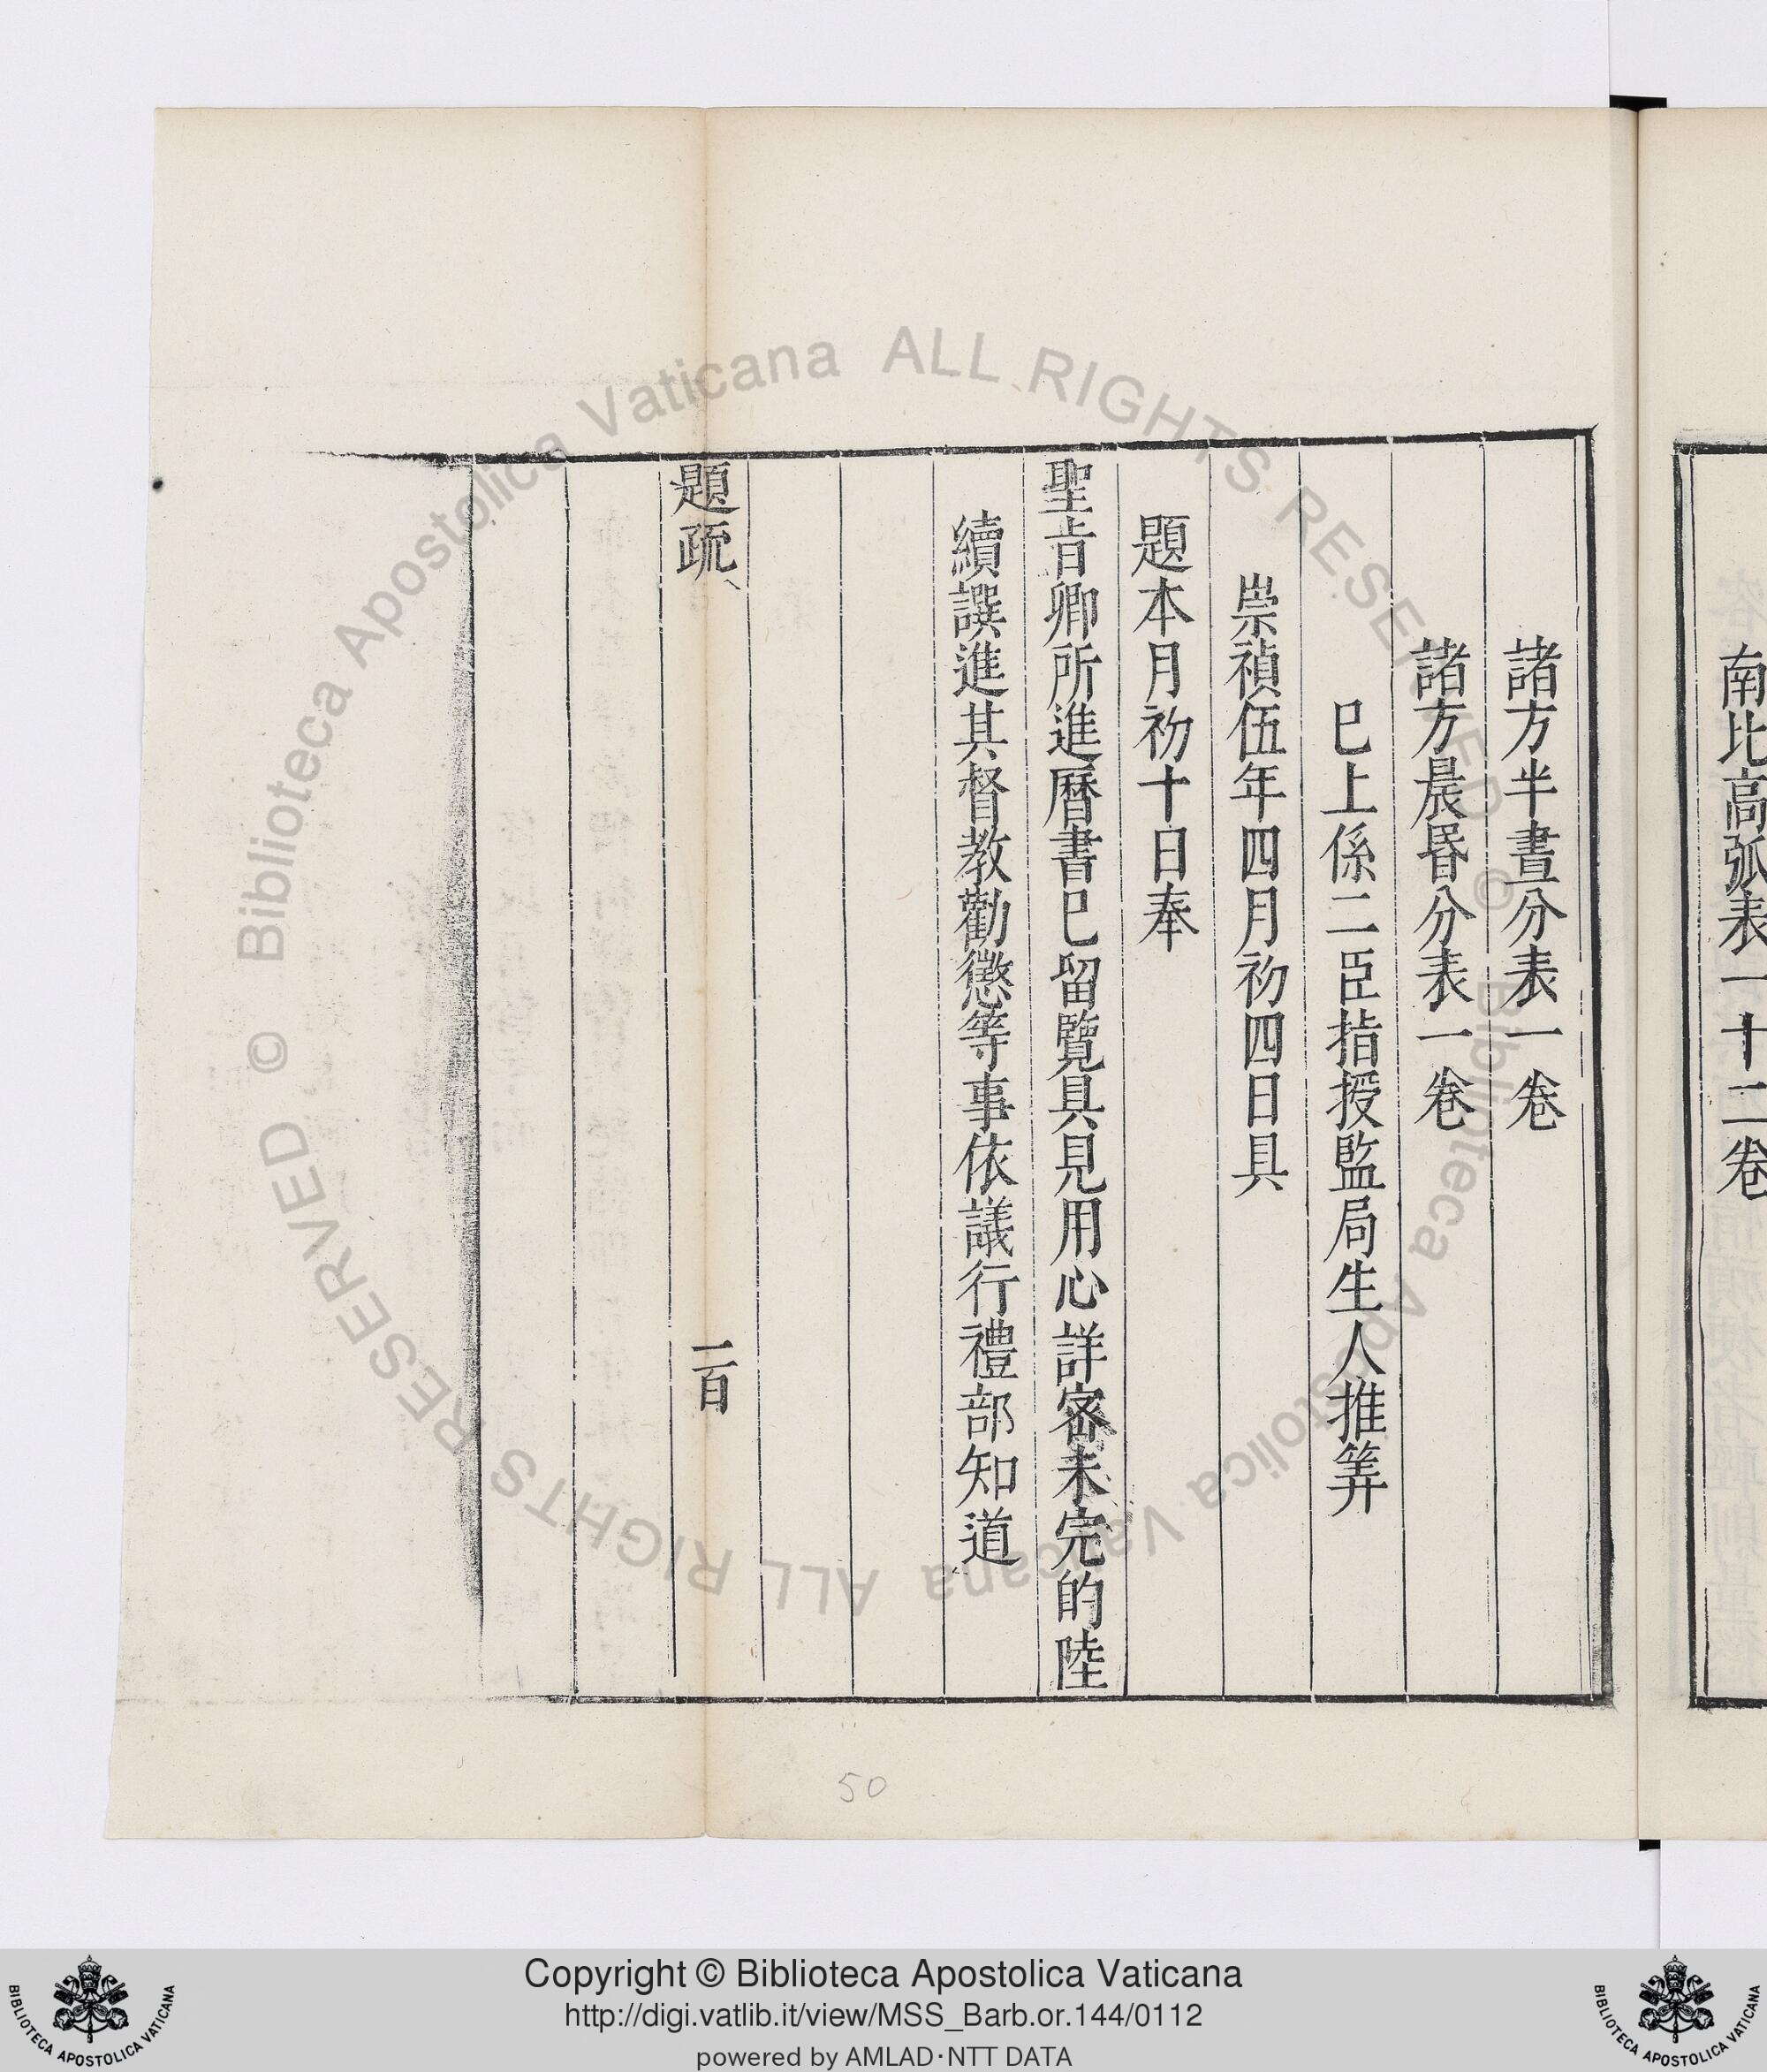 南北高弧表一十二卷
諸方半晝分表一卷
諸方晨昬分表一卷
巳上係二臣指授監局生人推筭
崇禎伍年四月初四日具
題本月初十日奉
聖旨卿所進曆書巳留覽具見用心詳宻未完的陸
續譔進其督教勸懲等事依議行禮部知道
題疏
一百
50
© Biblioteca Apostolica Vaticana ALL RIGHTS RESERVED © Biblioteca Apostolica Vaticana ALL RIGHTS RESERVED
Copyright © Biblioteca Apostolica Vaticana
http://digi.vatlib.it/view/MSS_Barb.or.144/0112
powered by AMLAD·NTT DATA
BIBLIOTECA APOSTOLICA VATICANA
BIBLIOTECA APOSTOLICA VATICANA